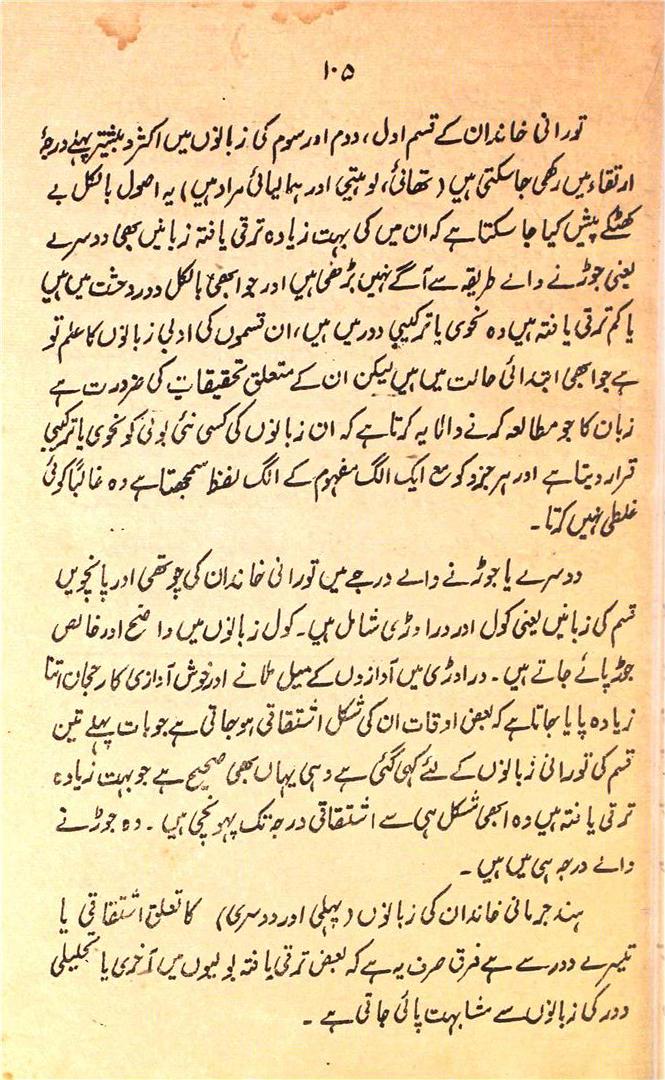 ۱۰۵
تورانی خاندان کے قسم اول، دوم اور سوم کی زبانوں میں اکثر و بیشتر پہلے درجۂ
ارتقاء میں رکھی جا سکتی ہیں (تھائی، لوہیتی اور ہمالیائی مراد ہیں) یہ اصول بالکل بے
کھٹکے پیش کیا جا سکتا ہے کہ ان میں کی بہت زیادہ ترقی یافتہ زبانیں بھی دوسرے
یعنی جوڑنے والے طریقہ سے آگے نہیں بڑھی ہیں اور جو ابھی بالکل دور وحشت میں ہیں
یا کم ترقی یافتہ ہیں وہ نحوی یا ترکیبی دور میں ہیں، ان قسموں کی ادبی زبانوں کا علم تو
ہے جو ابھی ابتدائی حالت میں ہیں لیکن ان کے متعلق تحقیقات کی ضرورت ہے
زبان کا جو مطالعہ کرنے والا یہ کرتا ہے کہ ان زبانوں کی کسی نئی بولی کو نحوی یا ترکیبی
قرار دیتا ہے اور ہر جزو کو مع ایک الگ مفہوم کے الگ لفظ سمجھتا ہے وہ غالباً کوئی
غلطی نہیں کرتا۔
دوسرے یا جوڑنے والے درجے میں تورانی خاندان کی چوتھی اور پانچویں
قسم کی زبانیں یعنی کول اور دراوڑی شامل ہیں۔ کول زبانوں میں واضح اور خالص
جوڑ پائے جاتے ہیں۔ دراوڑی میں آوازوں کے میل ملانے اور خوش آوازی کا رجحان اتنا
زیادہ پایا جاتا ہے کہ بعض اوقات ان کی شکل اشتقاقی ہو جاتی ہے جو بات پہلے تین
قسم کی تورانی زبانوں کے لئے کہی گئی ہے وہی یہاں بھی صحیح ہے جو بہت زیادہ
ترقی یافتہ ہیں وہ ابھی شکل ہی سے اشتقاقی درجہ تک پہونچی ہیں۔ وہ جوڑنے
والے درجہ ہی میں ہیں۔
ہند جرمانی خاندان کی زبانوں (پہلی اور دوسری) کا تعلق اشتقاقی یا
تیسرے دور سے ہے فرق صرف یہ ہے کہ بعض ترقی یافتہ بولیوں میں آخری یا تحلیلی
دور کی زبانوں سے مشابہت پائی جاتی ہے۔